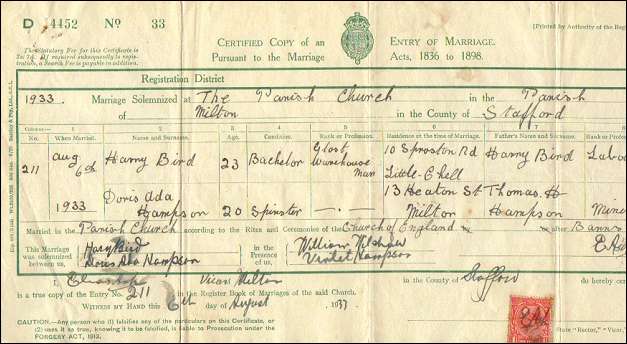 D 4452 No 33
[Printed by Authority of the Regi
The Statutory Fee for this Certificate is
2s. 7d. If required subsequently to regis-
tration, a Search Fee is payable in addition.
CERTIFIED COPY of an ENTRY OF MARRIAGE.
Pursuant to the Marriage Acts, 1836 to 1898.
Registration District
1933. Marriage Solemnized at The Parish Church in the Parish
of Milton in the County of Stafford
COLUMNS:— 1 2 3 4 5 6 7
No. When Married. Name and Surname. Age. Condition. Rank or Profession. Residence at the time of Marriage. Father's Name and Surname. Rank or Profes
211 Aug 6th 1933 Harry Bird 23 Bachelor Glost Warehouse Man 10 Sproston Rd Little Chell Harry Bird Labo
Doris Ada Hampson 20 Spinster —.— 13 Heaton St Milton Thomas H Hampson Mine
Married in the Parish Church according to the Rites and Ceremonies of the Church of England after Banns
This Marriage was solemnized between us, Harry Bird Doris Ada Hampson in the Presence of us, William Violet Hampson
I, Vicar Milton in the County of Stafford do hereby cer
is a true copy of the Entry No. 211 in the Register Book of Marriages of the said Church.
WITNESS MY HAND this 6th day of August 1933
CAUTION.—Any person who (1) falsifies any of the particulars on this Certificate, or
(2) uses it as true, knowing it to be falsified, is liable to Prosecution under the
FORGERY ACT, 1913.
State "Rector," "Vicar,"